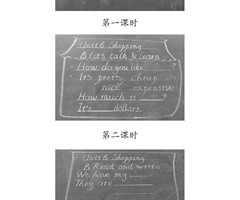 第一课时
Unit 6 Shopping
B Let's talk & learn
How do you like ____?
It's pretty. cheap
nice expensive
How much is ____?
It's ____ dollars.
第二课时
Unit 6 Shopping
B Read and write
We have my ____
They are ____